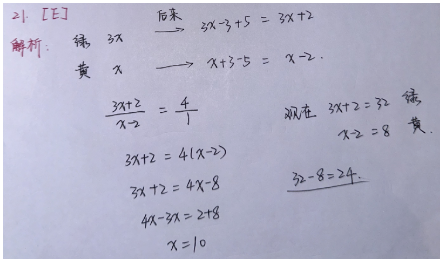 21. [E]
解析: 绿 3x 后来 → 3x-3+5 = 3x+2
黄 x → x+3-5 = x-2.
(3x+2)/(x-2) = 4/1
3x+2 = 4(x-2)
3x+2 = 4x-8
4x-3x = 2+8
x = 10
现在 3x+2 = 32 绿
x-2 = 8 黄.
32-8 = 24.